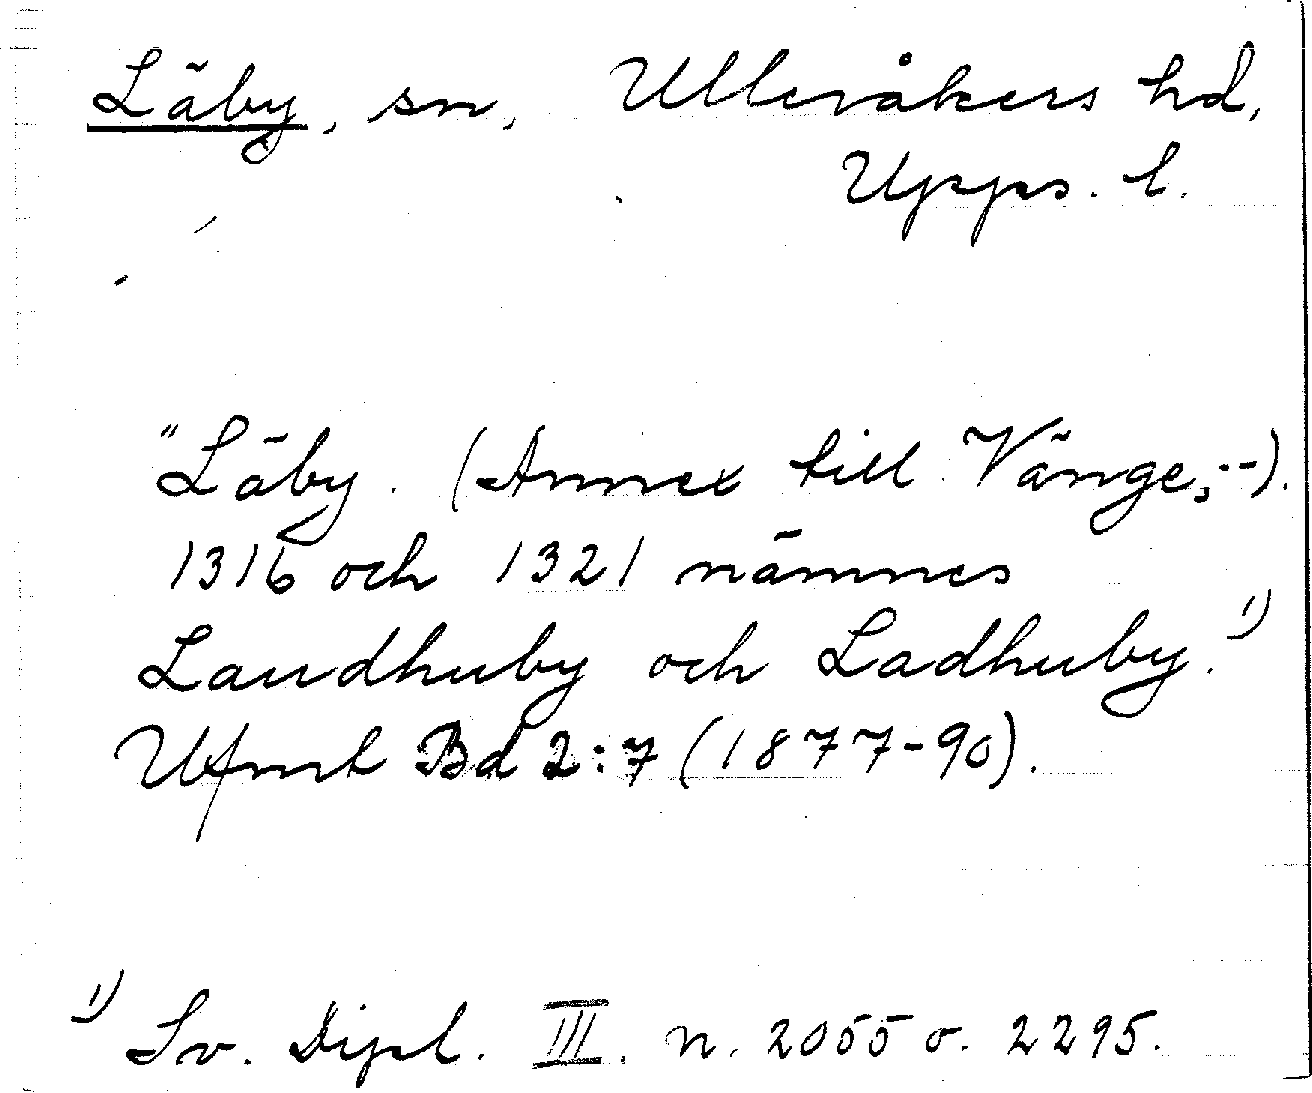 Läby, sn, Ulleråkers hd,
Upps. l.
"Läby. (Annex till Vänge,--).
1316 och 1321 nämnes
Laudhuby och Ladhuby.¹⁾
Ufmt Bd 2:7 (1877-90).
¹⁾ Sv. Dipl. III. n. 2055 o. 2295.